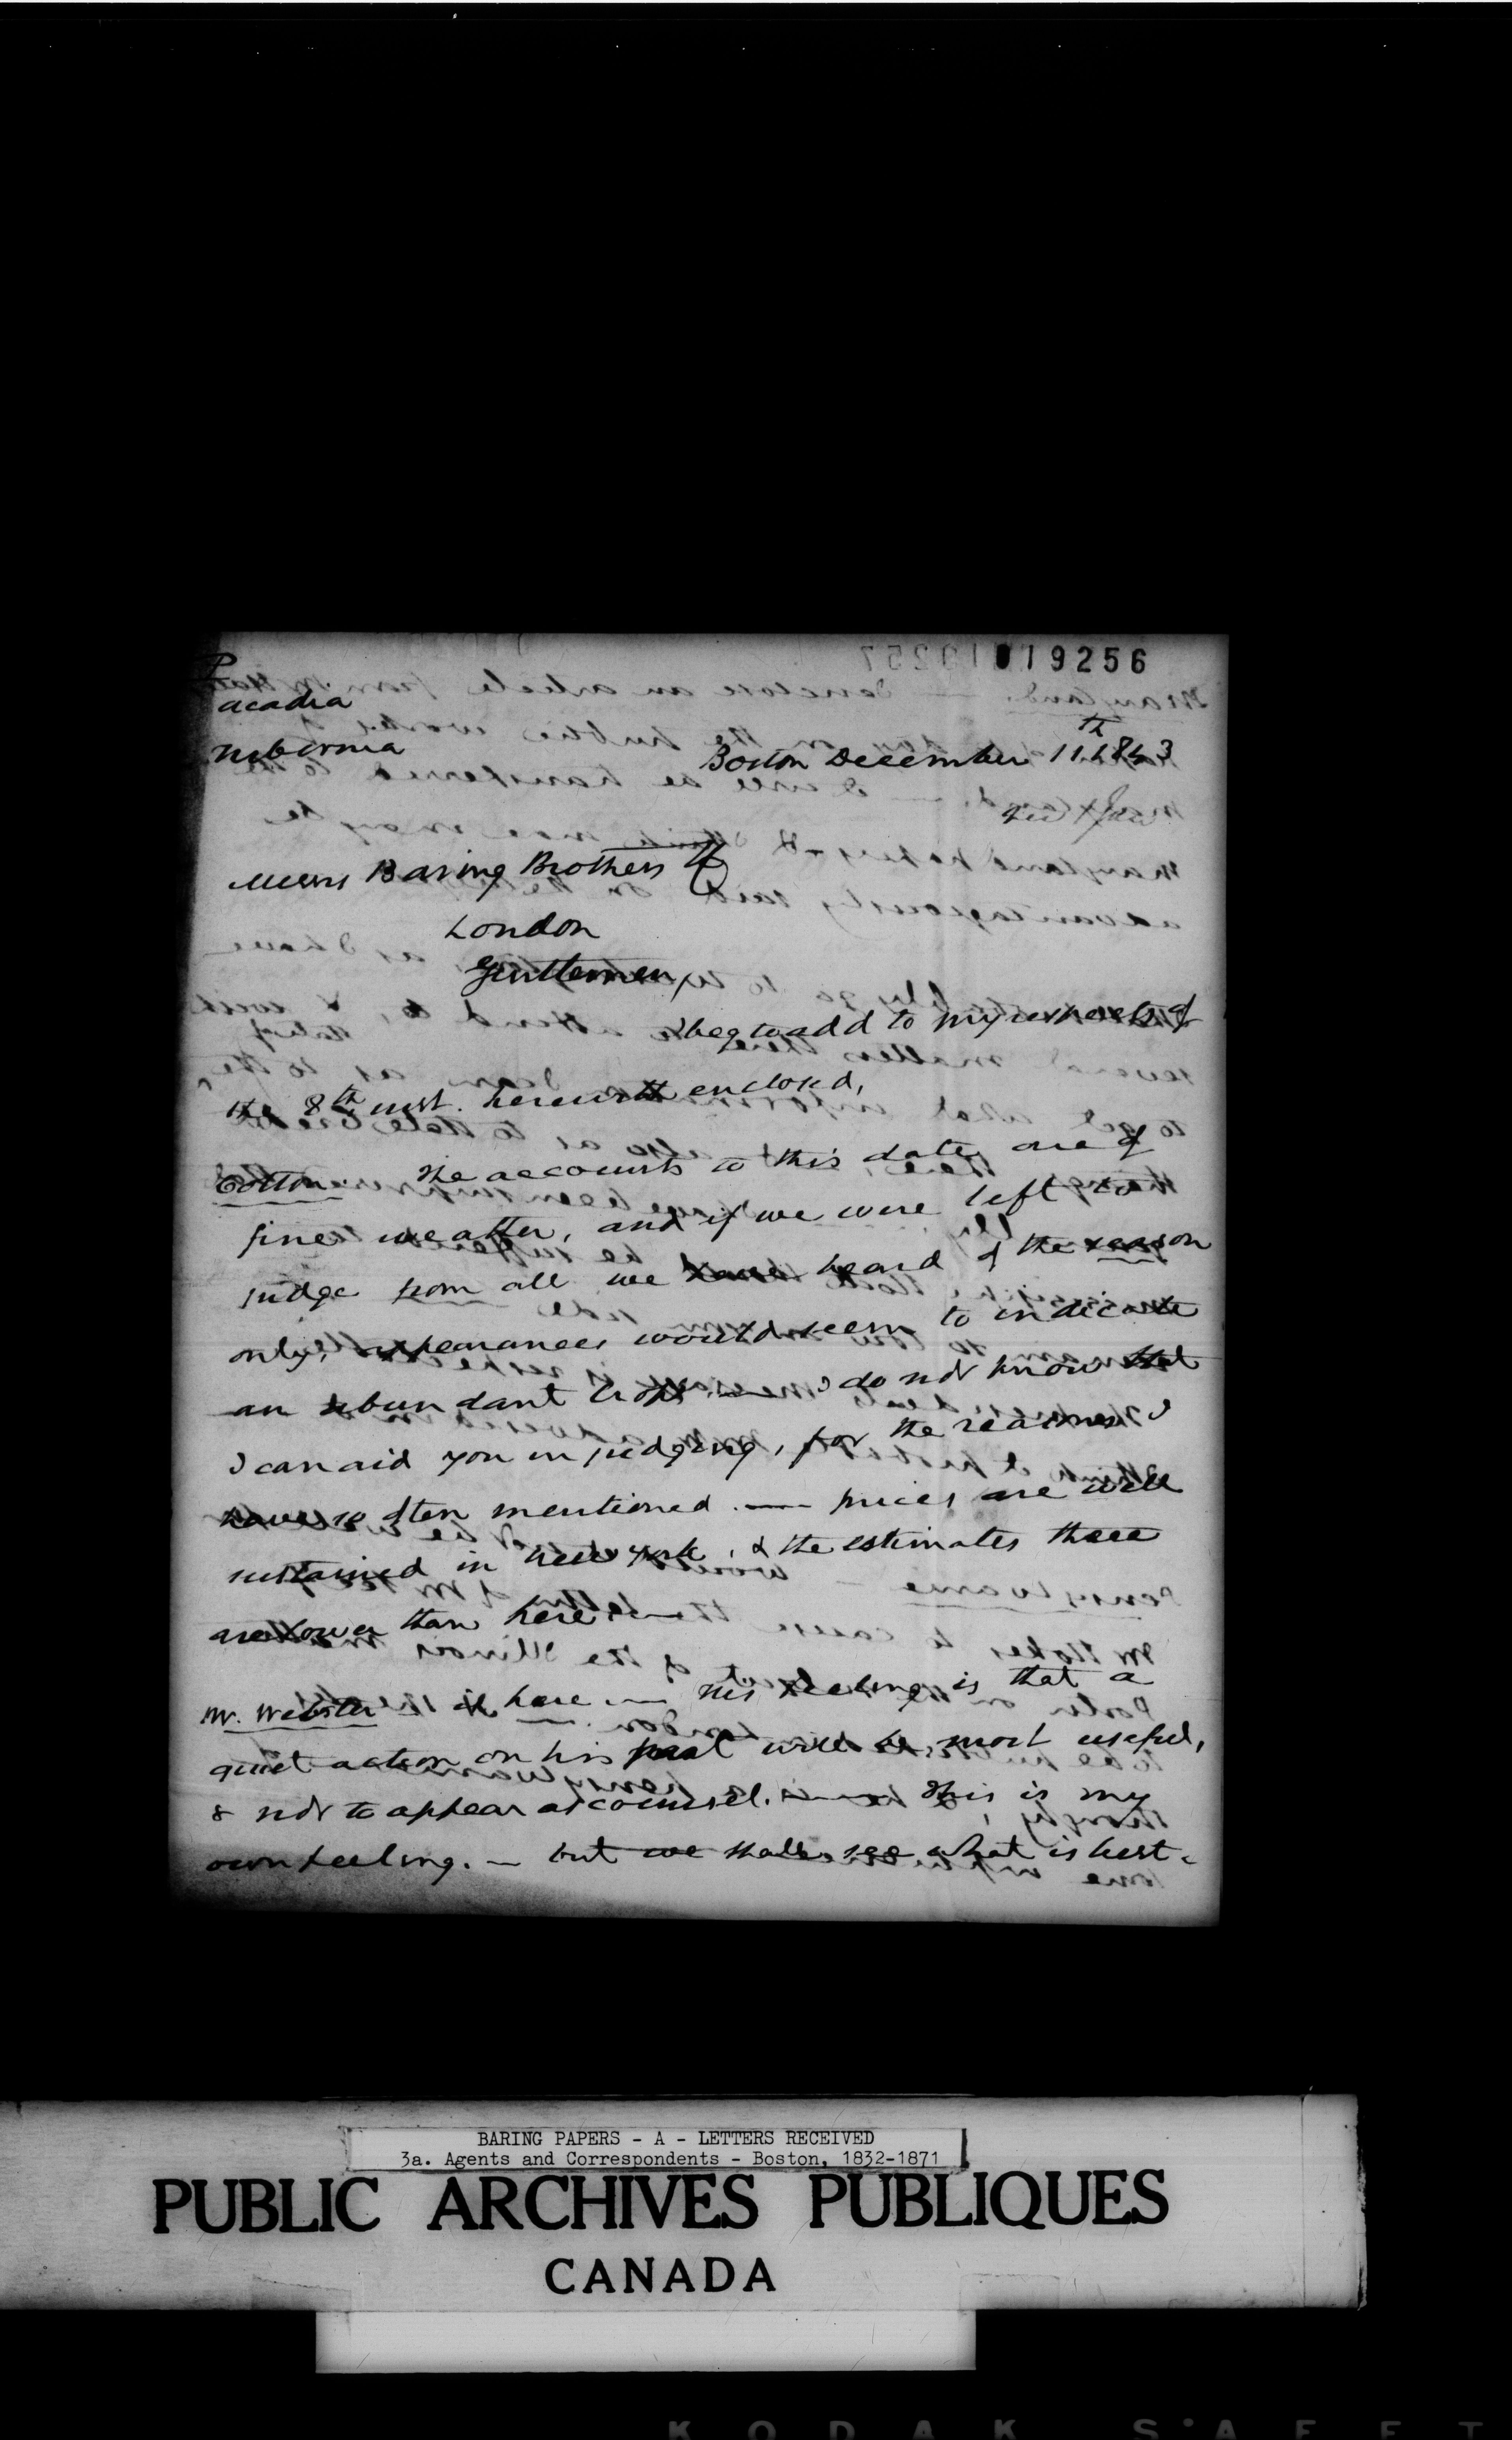 019256
P
Acadia
Hibernia
Boston December 11th 1843
Messrs Baring Brothers & Co
London
Gentlemen,
I beg to add to my respects of
the 8th inst. herewith enclosed,
Cotton. The accounts to this date are of
fine weather, and if we were left to
judge from all we have heard of the season
only, appearances would seem to indicate
an abundant crop — I do not know that
I can aid you in judging, for the reasons I
have so often mentioned. — prices are well
sustained in New York, & the estimates there
are lower than here —
Mr. Webster is here — His feeling is that a
quiet action on his part will be most useful,
& not to appear as counsel. — This is my
own feeling. — but we shall see what is best.
BARING PAPERS - A - LETTERS RECEIVED
3a. Agents and Correspondents - Boston, 1832-1871
PUBLIC ARCHIVES PUBLIQUES
CANADA
KODAK SAFET